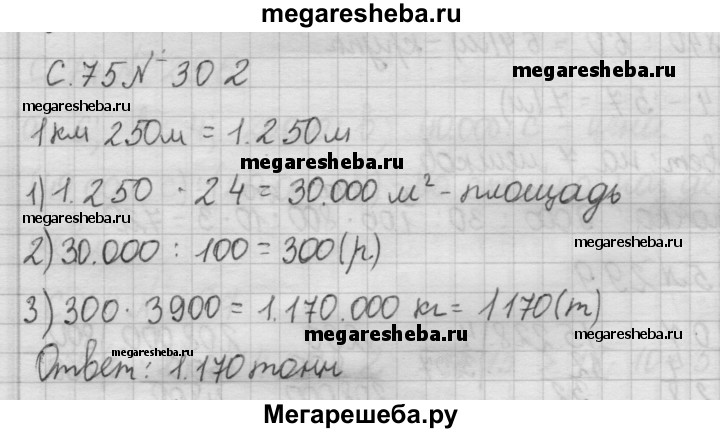 megaresheba.ru
С. 75 № 302
megaresheba.ru
megaresheba.ru
1 км 250м = 1.250м
megaresheba.ru
1) 1.250 · 24 = 30.000 м² - площадь
megaresheba.ru
2) 30.000 : 100 = 300 (р.)
megaresheba.ru
3) 300 · 3900 = 1.170.000 кг = 1170 (т)
megaresheba.ru
megaresheba.ru
Ответ: 1.170 тонн
Мегарешеба.ру